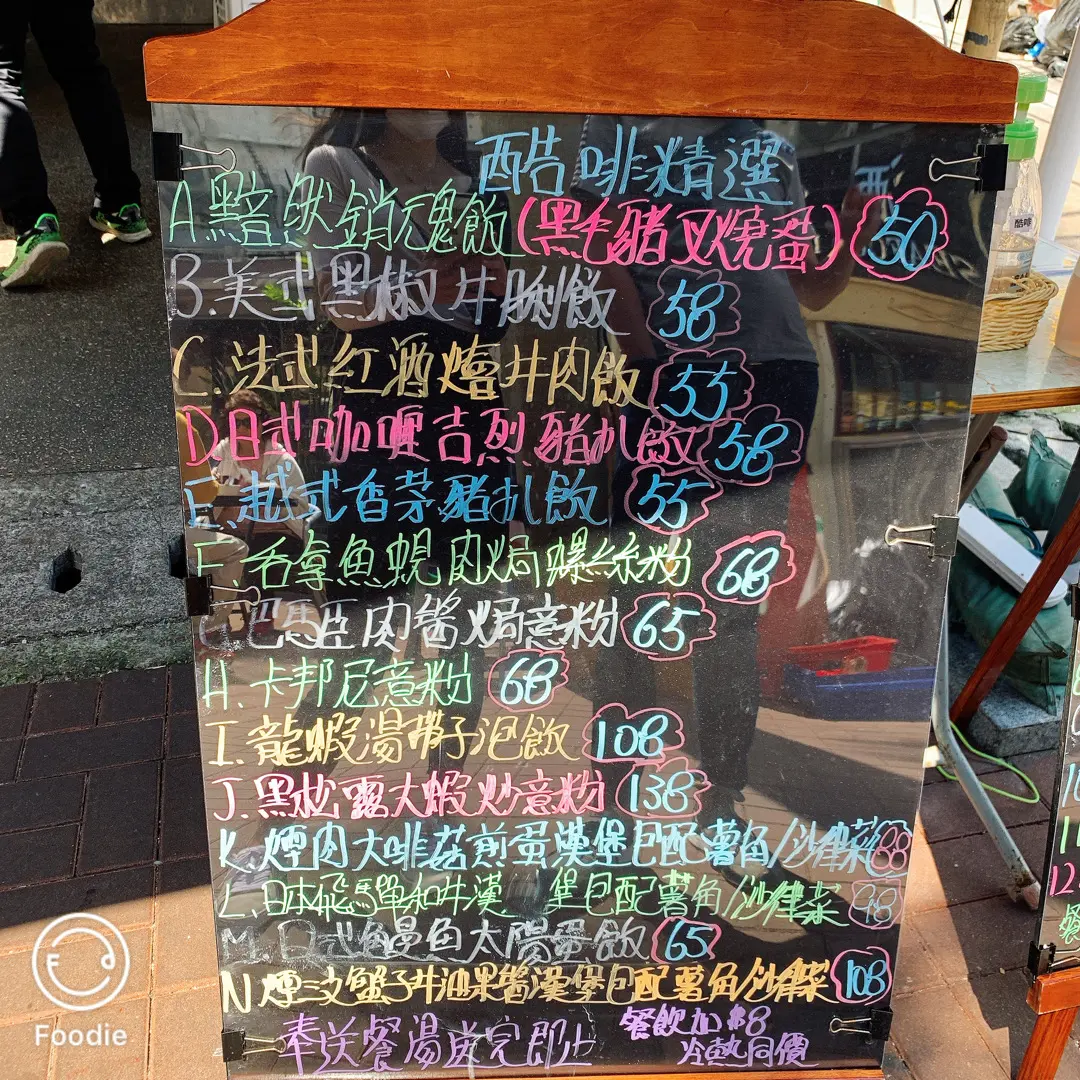 酷啡精選
A.黯然銷魂飯(黑毛豬叉燒蛋) 50
B.美式黑椒牛腩飯 58
C.法式紅酒燴牛肉飯 55
D.日式咖喱吉烈豬扒飯 58
E.越式香茅豬扒飯 55
F.吞拿魚蜆肉焗螺絲粉 68
G.巴馬臣肉醬焗意粉 65
H.卡邦尼意粉 68
I.龍蝦湯帶子泡飯 108
J.黑松露大蝦炒意粉 138
K.煙肉大啡菇煎蛋漢堡包配薯角/沙律菜 88
L.日本飛驒和牛漢堡包配薯角/沙律菜 98
M.日式鰻魚太陽蛋飯 65
N.煙三文蟹子牛油果醬漢堡包配薯角/沙律菜 108
奉送餐湯送完即止
餐飲加$8
冷熱同價
酷啡
12
Foodie